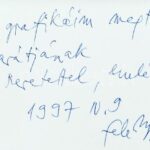 grafikáim megt
barátjának
szeretettel, emlé
1997 IV. 9